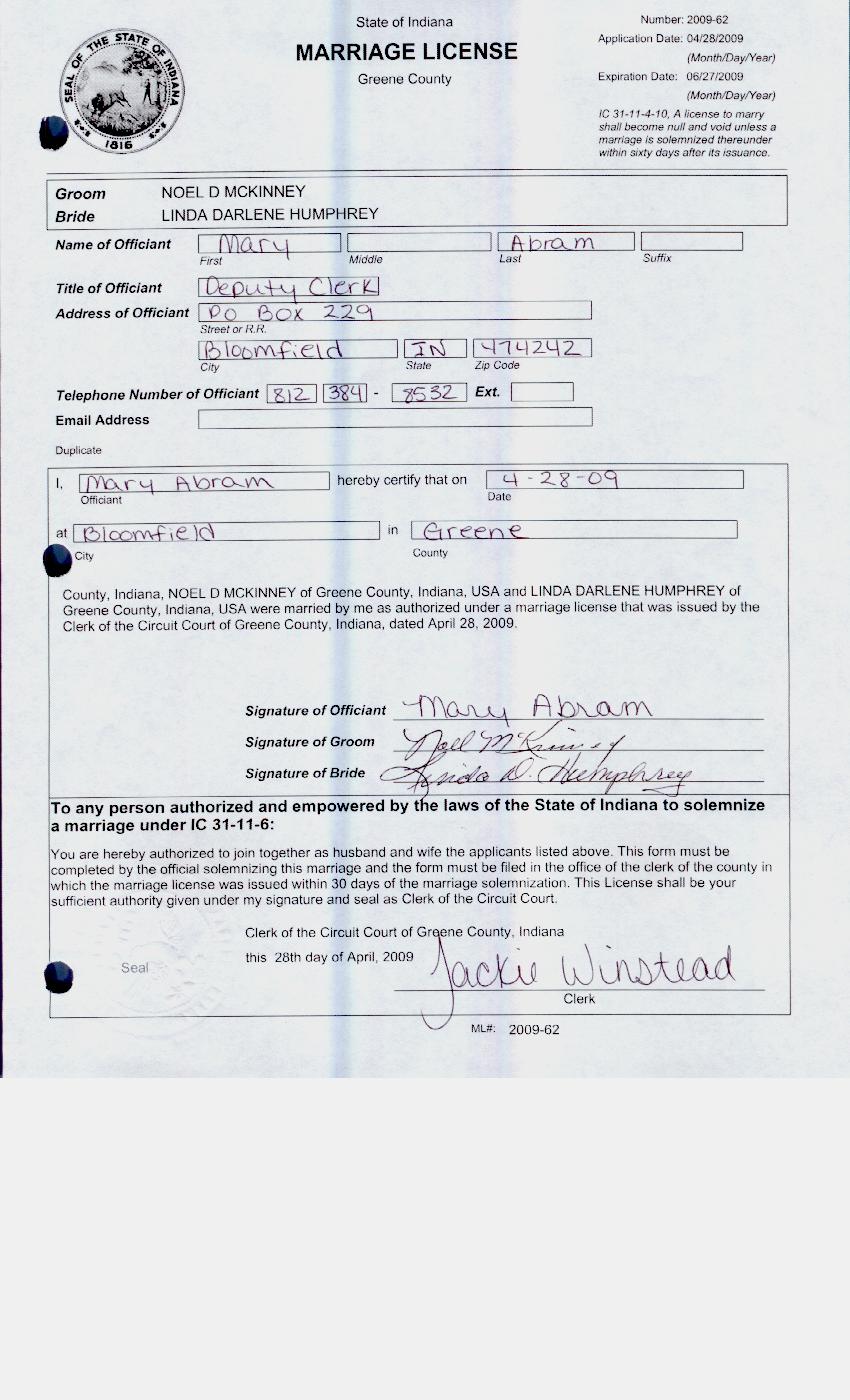 State of Indiana
MARRIAGE LICENSE
Greene County
Number: 2009-62
Application Date: 04/28/2009
(Month/Day/Year)
Expiration Date: 06/27/2009
(Month/Day/Year)
IC 31-11-4-10, A license to marry
shall become null and void unless a
marriage is solemnized thereunder
within sixty days after its issuance.
SEAL OF THE STATE OF INDIANA
1816
Groom NOEL D MCKINNEY
Bride LINDA DARLENE HUMPHREY
Name of Officiant Mary Abram
First Middle Last Suffix
Title of Officiant Deputy Clerk
Address of Officiant PO Box 229
Street or R.R.
Bloomfield IN 474242
City State Zip Code
Telephone Number of Officiant 812 384 - 8532 Ext.
Email Address
Duplicate
I, Mary Abram hereby certify that on 4-28-09
Officiant Date
at Bloomfield in Greene
City County
County, Indiana, NOEL D MCKINNEY of Greene County, Indiana, USA and LINDA DARLENE HUMPHREY of
Greene County, Indiana, USA were married by me as authorized under a marriage license that was issued by the
Clerk of the Circuit Court of Greene County, Indiana, dated April 28, 2009.
Signature of Officiant Mary Abram
Signature of Groom Noel McKinney
Signature of Bride Linda D. Humphrey
To any person authorized and empowered by the laws of the State of Indiana to solemnize
a marriage under IC 31-11-6:
You are hereby authorized to join together as husband and wife the applicants listed above. This form must be
completed by the official solemnizing this marriage and the form must be filed in the office of the clerk of the county in
which the marriage license was issued within 30 days of the marriage solemnization. This License shall be your
sufficient authority given under my signature and seal as Clerk of the Circuit Court.
Clerk of the Circuit Court of Greene County, Indiana
this 28th day of April, 2009 Jackie Winstead
Seal
Clerk
ML#: 2009-62